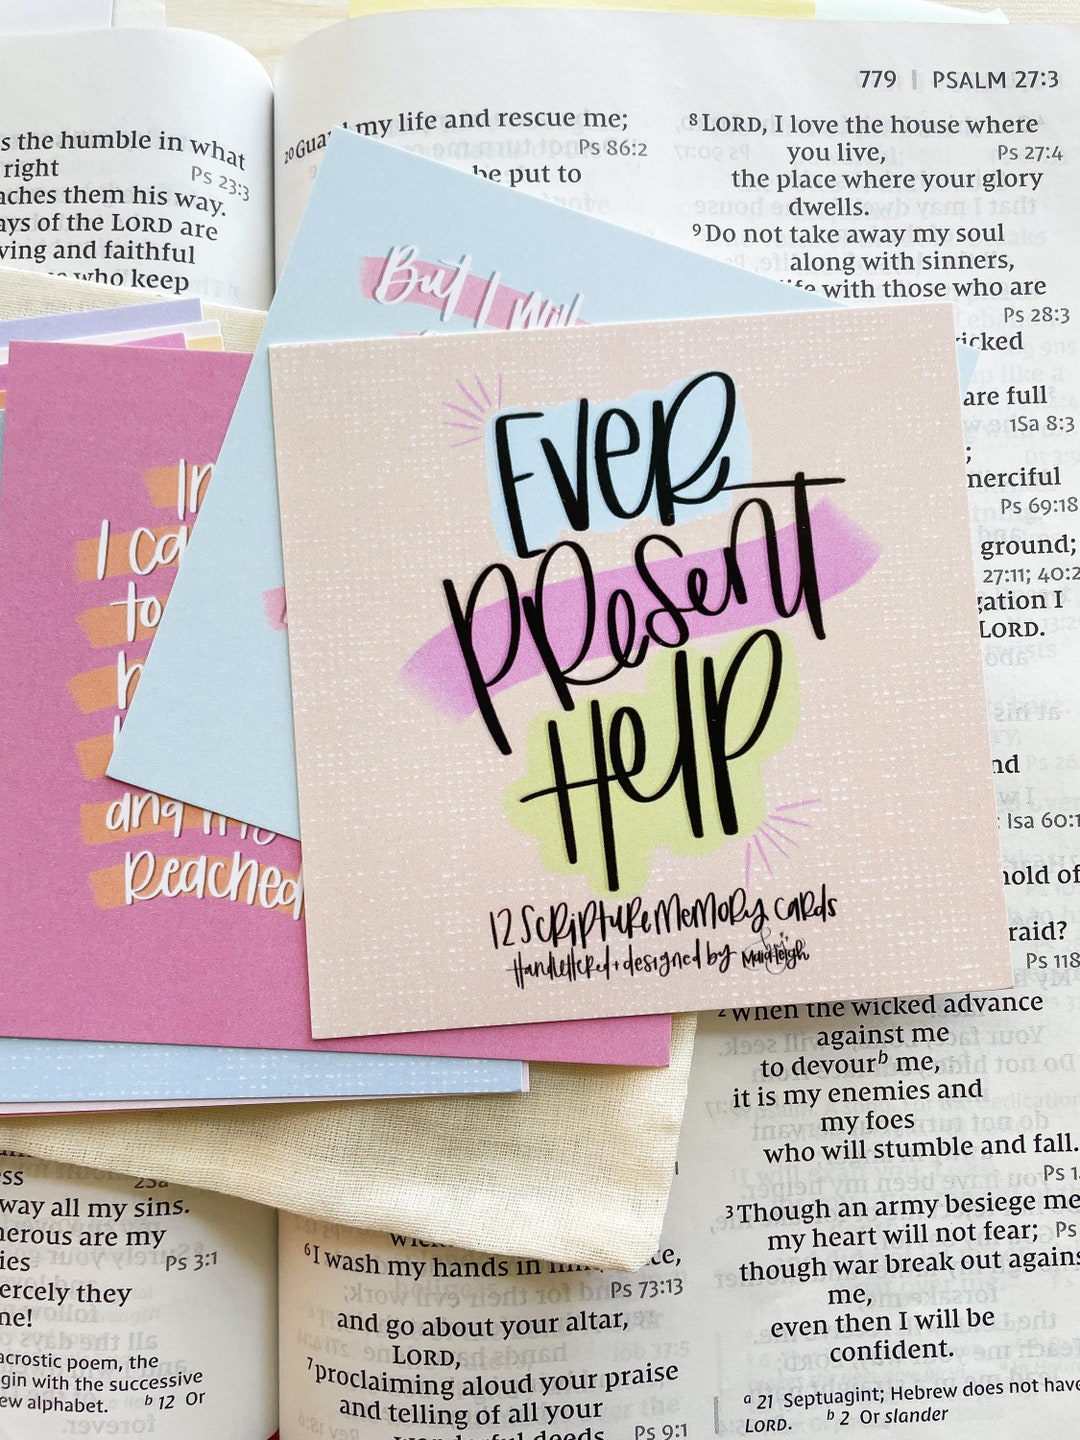 779 | PSALM 27:3
s the humble in what
right
Ps 23:3
aches them his way.
ays of the LORD are
ving and faithful
who keep
20 Guard my life and rescue me;
Ps 86:2
be put to
8 LORD, I love the house where
you live,
Ps 27:4
the place where your glory
dwells.
9 Do not take away my soul
along with sinners,
life with those who are
Ps 28:3
wicked
are full
1Sa 8:3
;
merciful
Ps 69:18
ground;
27:11; 40:2
gation I
LORD.
nd
Isa 60:1
hold of
raid?
Ps 118
2 When the wicked advance
against me
to devour b me,
it is my enemies and
my foes
who will stumble and fall.
Ps 1
3 Though an army besiege me
my heart will not fear;
Ps
though war break out agains
me,
even then I will be
confident.
a 21 Septuagint; Hebrew does not have
LORD. b 2 Or slander
But I will
In
I ca
to
h
and my
Reached
Ever
Present
Help
12 Scripture Memory Cards
Handlettered + designed by MaidLeigh
ss
25a
way all my sins.
erous are my
ies
Ps 3:1
ercely they
ne!
acrostic poem, the
gin with the successive
ew alphabet. b 12 Or
6 I wash my hands in
ce,
Ps 73:13
and go about your altar,
LORD,
7 proclaiming aloud your praise
and telling of all your
wonderful deeds.
Ps 9:1